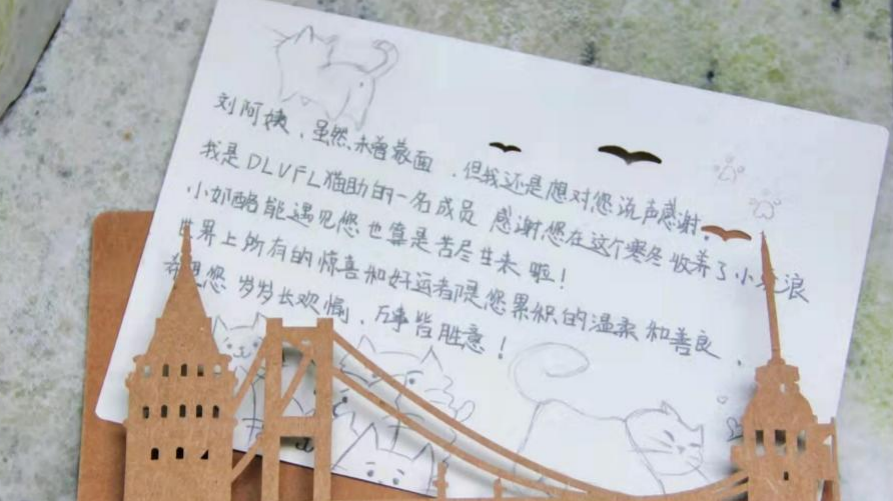 刘阿姨、虽然未曾蒙面，但我还是想对您说声感谢。
我是DLUFL猫助的一名成员 感谢您在这个寒冬收养了小流浪
小奶酪能遇见您也算是苦尽甘来啦！
世界上所有的惊喜和好运都是您累积的温柔和善良、
希望您 岁岁长欢愉、万事皆胜意！